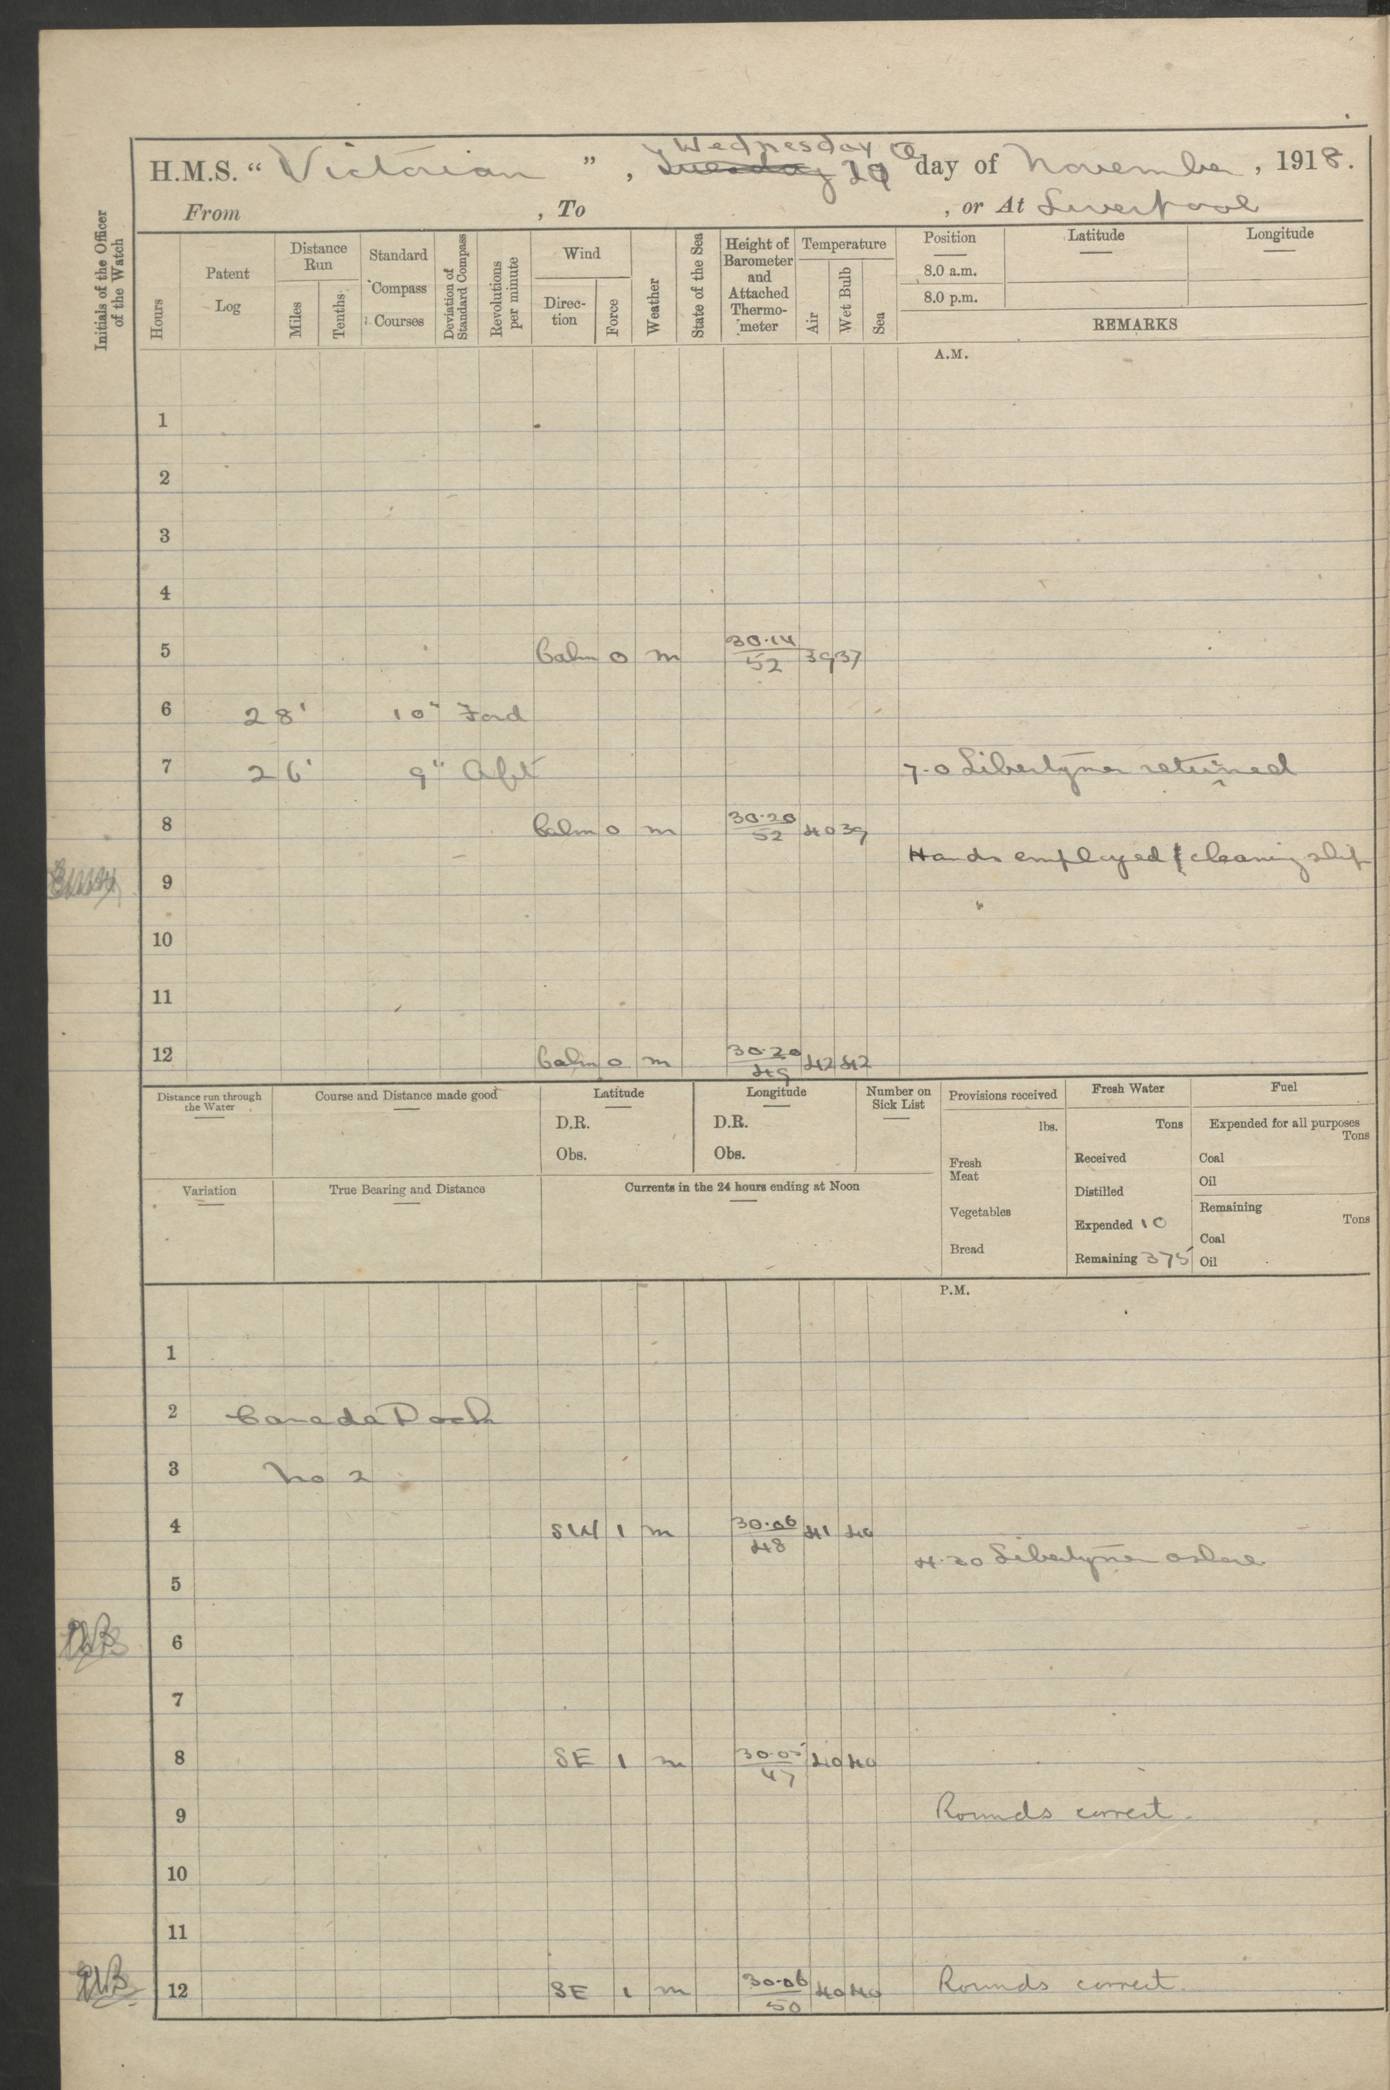 H.M.S. " Victorian ", Wednesday day of November, 1918.
From , To , or At Liverpool
Initials of the Officer of the Watch
Hours
Patent Log
Distance Run
Miles
Tenths
Standard Compass Courses
Deviation of Standard Compass
Revolutions per minute
Wind
Direc-tion
Force
Weather
State of the Sea
Height of Barometer and Attached Thermo-meter
Temperature
Air
Wet Bulb
Sea
Position
Latitude
Longitude
8.0 a.m.
8.0 p.m.
REMARKS
A.M.
1
2
3
4
5 Calm 0 m 30.14/52 39 37
6 28' 10" Ford
7 26' 9" Aft 7-0 Libertymen returned
8 Calm 0 m 30.20/52 40 39
Hands employed cleaning ship
9 "
10
11
12 Calm 0 m 30.20/49 42 42
Distance run through the Water
Course and Distance made good
Latitude
D.R.
Obs.
Longitude
D.R.
Obs.
Number on Sick List
Provisions received
lbs.
Fresh Meat
Vegetables
Bread
Fresh Water
Tons
Received
Distilled
Expended 10
Remaining 375
Fuel
Expended for all purposes
Tons
Coal
Oil
Remaining
Tons
Coal
Oil
Variation
True Bearing and Distance
Currents in the 24 hours ending at Noon
P.M.
1
2 Canada Dock
3 No 2
4 SW 1 m 30.06/48 41 40
4.30 Libertymen ashore
5
6
7
8 SE 1 m 30.05/47 40 40
9 Rounds correct.
10
11
12 SE 1 m 30.06/50 40 40 Rounds correct.